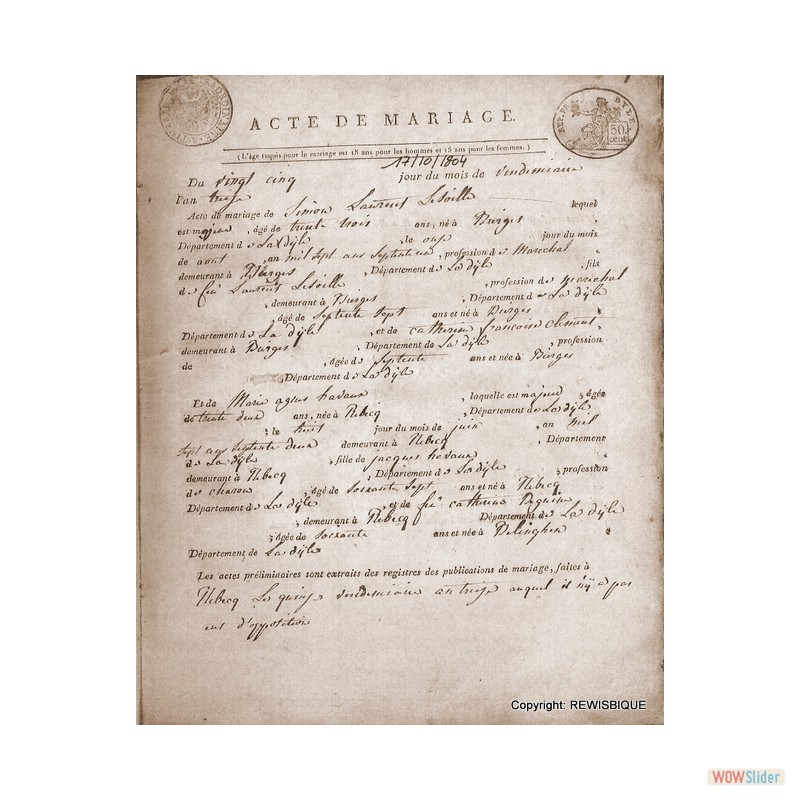 ACTE DE MARIAGE.
50. cent.
(L'âge requis pour le mariage est 18 ans pour les hommes et 15 ans pour les femmes.)
17/10/1804
Du vingt cinq jour du mois de vendemiaire
l'an treize
Acte de mariage de Simon Laurent lequel
est majeur, âgé de trente trois ans, né à
Département de La dÿle, le onze jour du mois
de aout, an mil sept ans septente un, profession de Marechal
demeurant à, Département de La dÿle, fils
de feu Laurent, profession de marechal
, demeurant à, Département de La dÿle
, âgé de septente sept ans et né à
Département de La dÿle, et de catherine françoise clement
demeurant à, Département de La dÿle, profession
de, âgée de septente ans et née à
, Département de La dÿle
Et de Marie agnes havaux, laquelle est majeur, âgée
de trente deux ans, née à Rebecq, Département de La dÿle
, le huit jour du mois de juin, an mil
sept ans septente deux demeurant à Rebecq, Département
de La dÿle, fille de jacques havaux
demeurant à Rebecq, Département de La dÿle, profession
de charon, âgé de soixante sept ans et né à Rebecq
Département de La dÿle, et de feu catherine
, demeurant à Rebecq Département de La dÿle
, âgée de soixante ans et née à
Département de La dÿle
Les actes préliminaires sont extraits des registres des publications de mariage, faites à
Rebecq Le quinze vendemiaire an treize auquel il n'ÿ a pas
eut d'opposition
Copyright: REWISBIQUE
WOWSlider